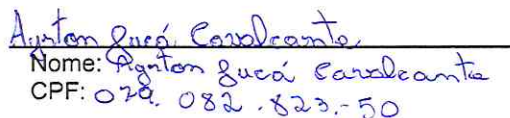 Ayrton Lucá Cavalcante
Nome: Ayrton Lucá Cavalcante
CPF: 029.082.823-50